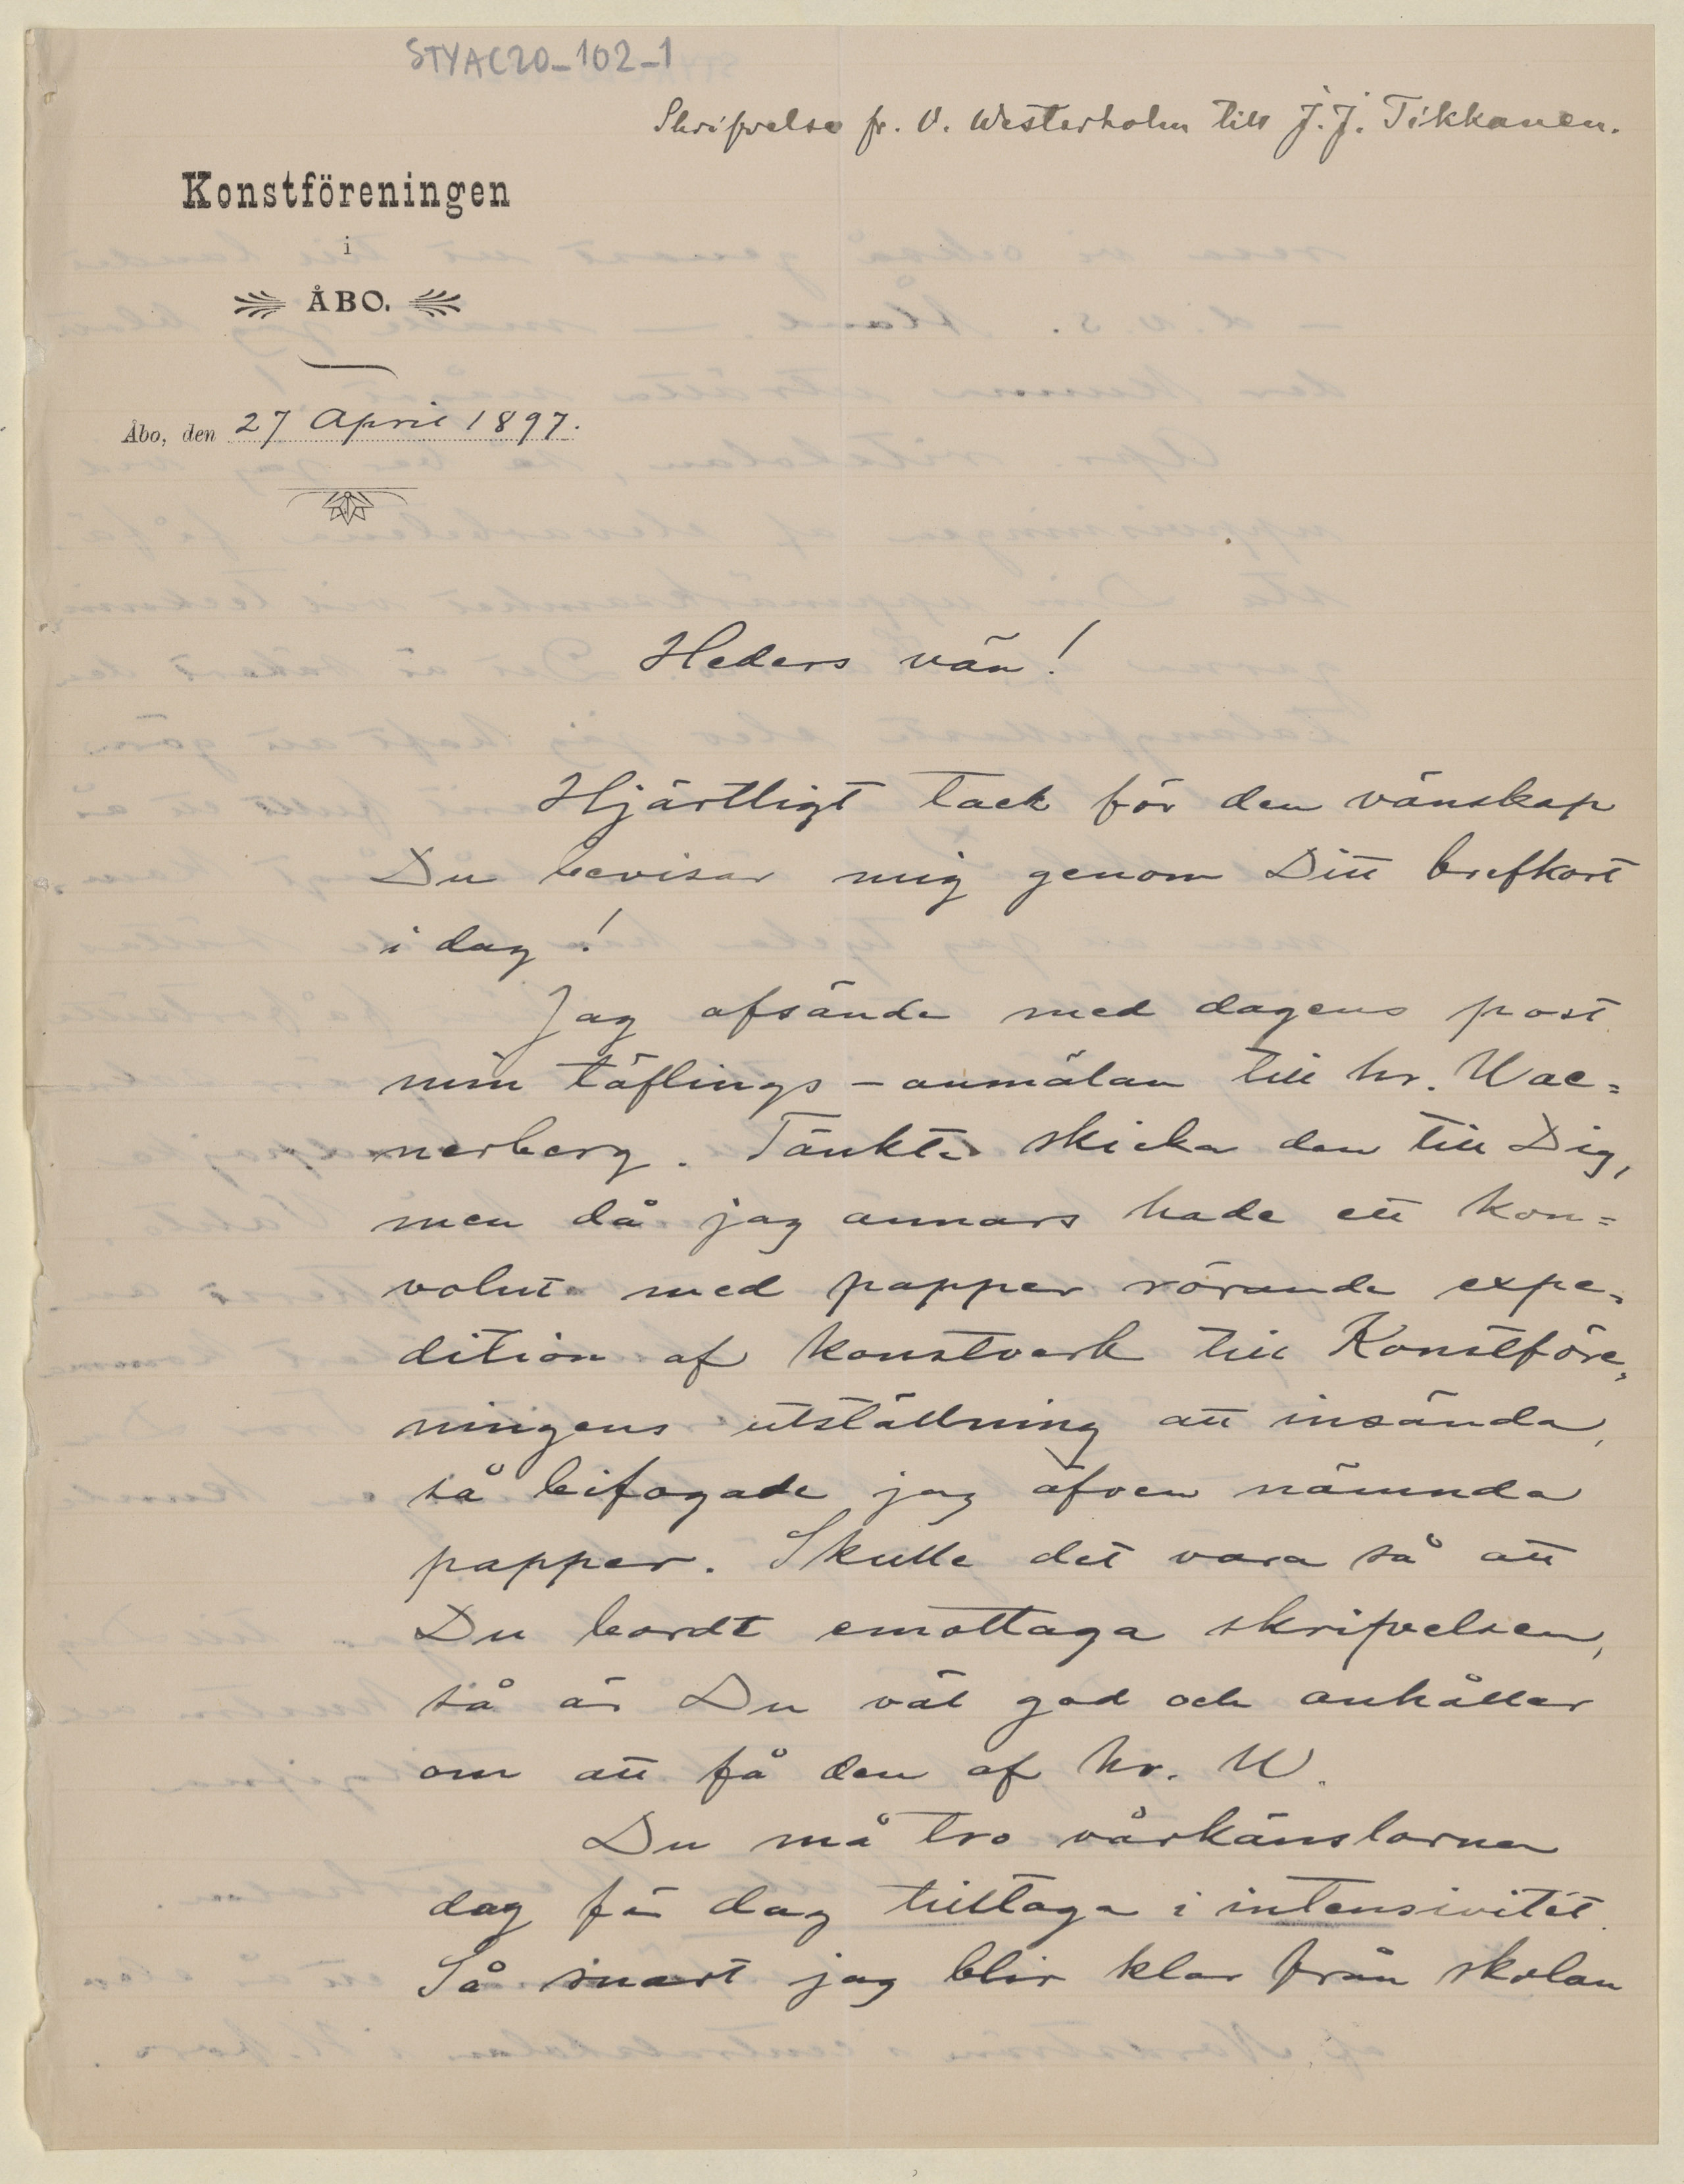 STYAC20_102_1
Skrifvelse fr. V. Westerholm till J. J. Tikkanen.
Konstföreningen
i
ÅBO.
Åbo, den 27 April 1897.
Heders vän!
Hjärtligt tack för den vänskap
Du bevisar mig genom Ditt brefkort
i dag!
Jag afsände med dagens post
min täflings-anmälan till hr. Wac=
nerberg. Tänkte skicka den till Dig,
men då jag annars hade ett kon=
volut med papper rörande expe=
dition af konstverk till Konstföre=
ningens utställning att insända,
så bifogade jag äfven nämnda
papper. Skulle det vara så att
Du bordt emottaga skrifvelsen,
så är Du väl god och anhåller
om att få den af hr. W.
Du må tro vårkänslorna
dag för dag tilltaga i intensivitet.
Så snart jag blir klar från skolan